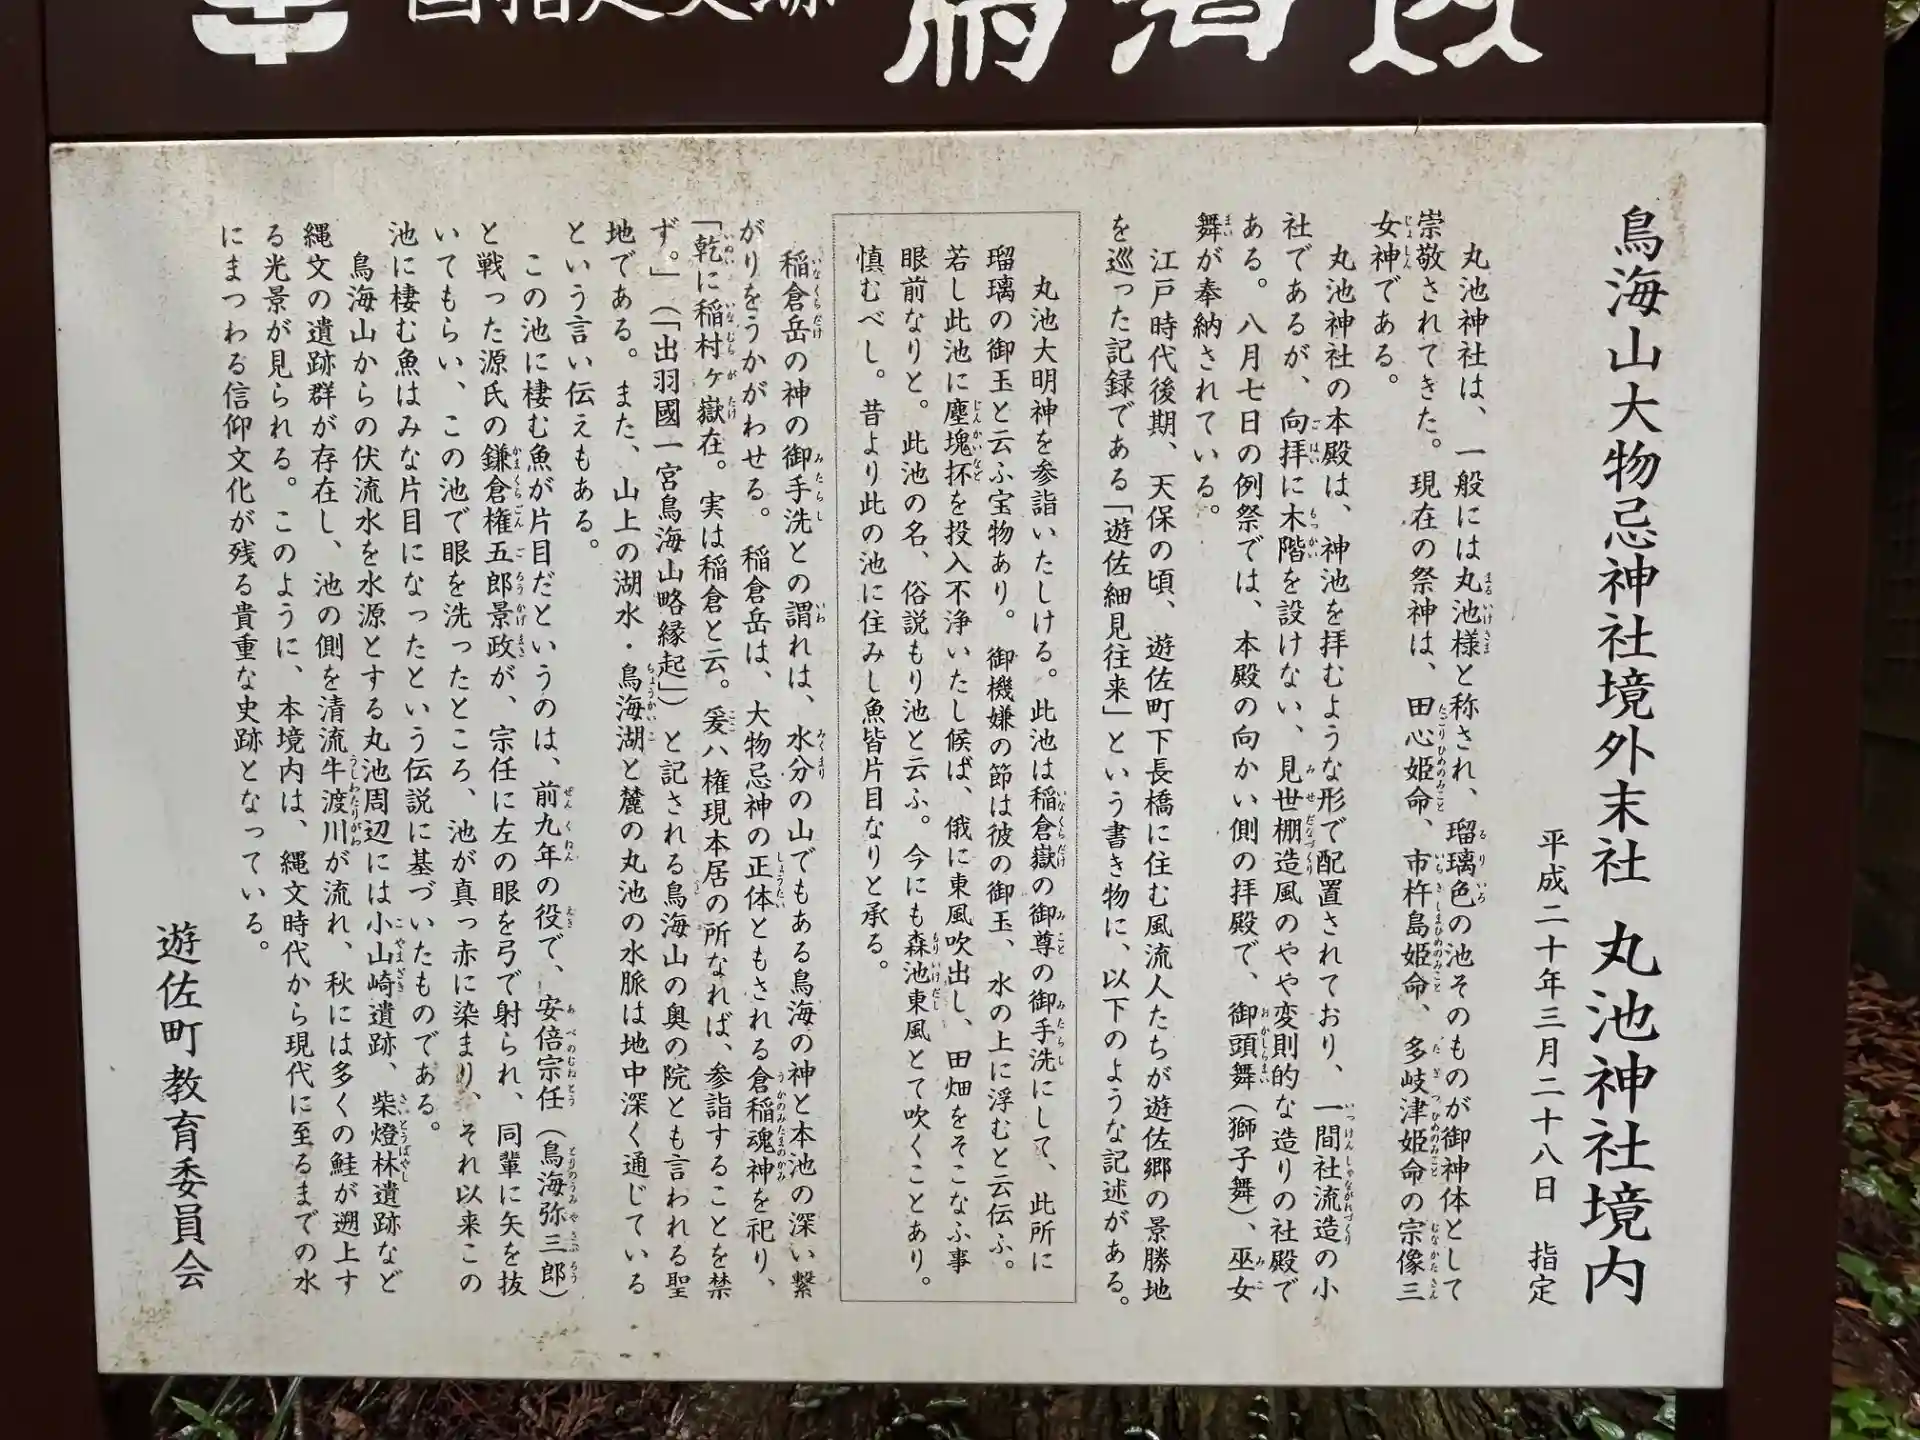 国指定史跡
鳥海山大物忌神社境外末社 丸池神社境内
平成二十年三月二十八日 指定
丸池神社は、一般には丸池様と称され、瑠璃色の池そのものが御神体として
崇敬されてきた。現在の祭神は、田心姫命、市杵島姫命、多岐津姫命の宗像三
女神である。
丸池神社の本殿は、神池を拝むような形で配置されており、一間社流造の小
社であるが、向拝に木階を設けない、見世棚造風のやや変則的な造りの社殿で
ある。八月七日の例祭では、本殿の向かい側の拝殿で、御頭舞(獅子舞)、巫女
舞が奉納されている。
江戸時代後期、天保の頃、遊佐町下長橋に住む風流人たちが遊佐郷の景勝地
を巡った記録である「遊佐細見往来」という書き物に、以下のような記述がある。
丸池大明神を参詣いたしける。此池は稲倉嶽の御尊の御手洗にして、此所に
瑠璃の御玉と云ふ宝物あり。御機嫌の節は彼の御玉、水の上に浮むと云伝ふ。
若し此池に塵塊抔を投入不浄いたし候ば、俄に東風吹出し、田畑をそこなふ事
眼前なりと。此池の名、俗説もり池と云ふ。今にも森池東風とて吹くことあり。
慎むべし。昔より此の池に住みし魚皆片目なりと承る。
稲倉岳の神の御手洗との謂れは、水分の山でもある鳥海の神と本池の深い繋
がりをうかがわせる。稲倉岳は、大物忌神の正体ともされる倉稲魂神を祀り、
「乾に稲村ヶ嶽在。実は稲倉と云。爰ハ権現本居の所なれば、参詣することを禁
ず。」(「出羽國一宮鳥海山略縁起」)と記される鳥海山の奥の院とも言われる聖
地である。また、山上の湖水・鳥海湖と麓の丸池の水脈は地中深く通じている
という言い伝えもある。
この池に棲む魚が片目だというのは、前九年の役で、安倍宗任(鳥海弥三郎)
と戦った源氏の鎌倉権五郎景政が、宗任に左の眼を弓で射られ、同輩に矢を抜
いてもらい、この池で眼を洗ったところ、池が真っ赤に染まり、それ以来この
池に棲む魚はみな片目になったという伝説に基づいたものである。
鳥海山からの伏流水を水源とする丸池周辺には小山崎遺跡、柴燈林遺跡など
縄文の遺跡群が存在し、池の側を清流牛渡川が流れ、秋には多くの鮭が遡上す
る光景が見られる。このように、本境内は、縄文時代から現代に至るまでの水
にまつわる信仰文化が残る貴重な史跡となっている。
遊佐町教育委員会